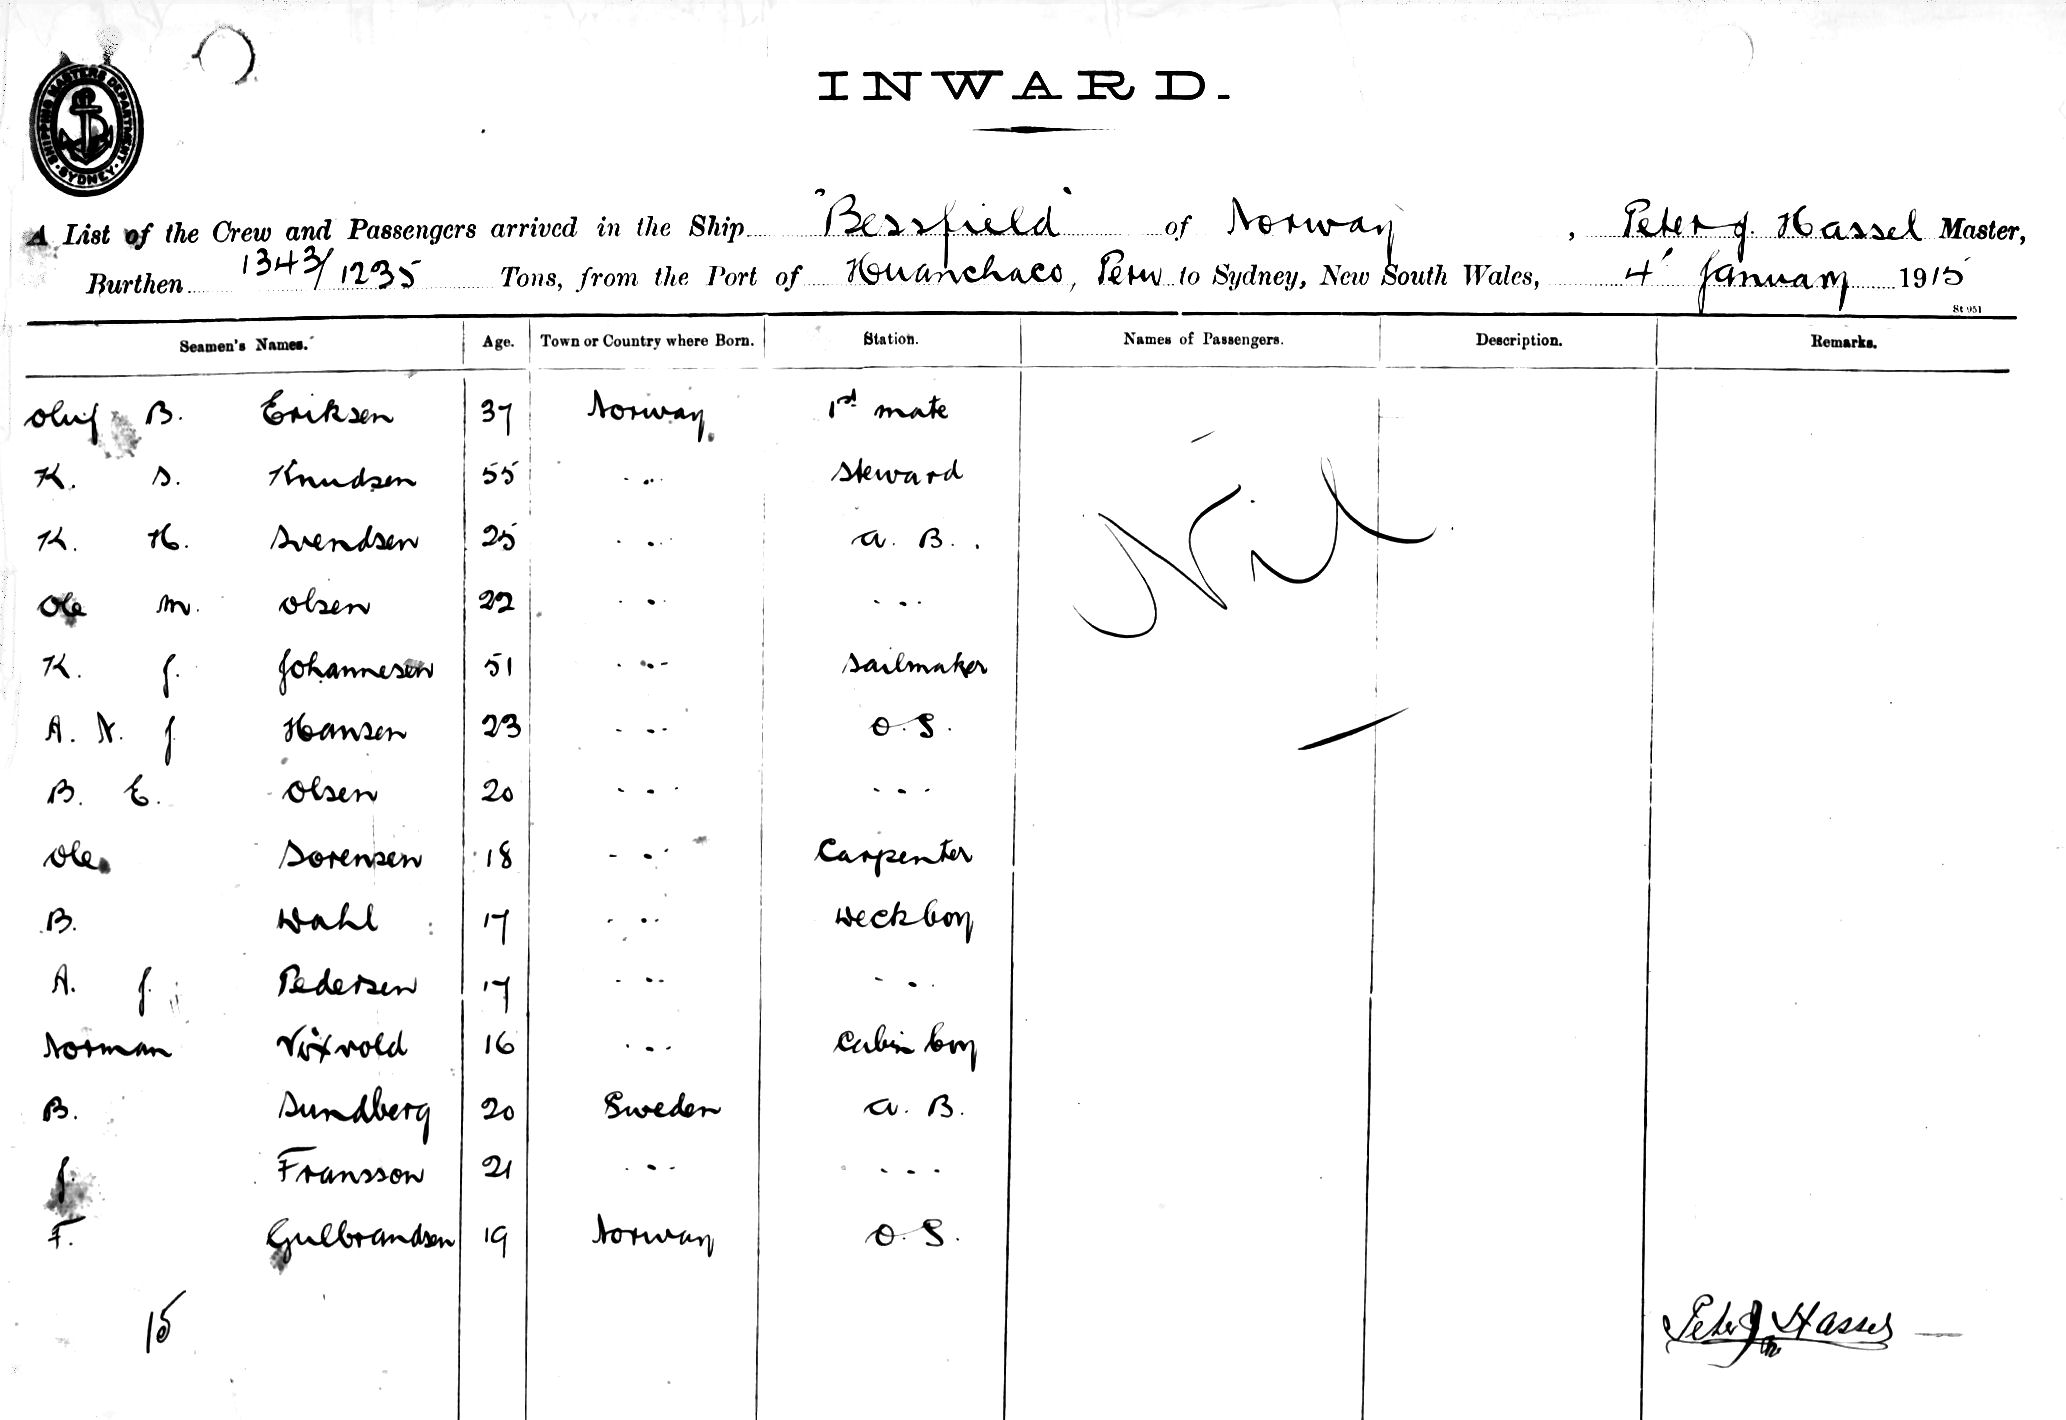 SHIPPING MASTERS DEPARTMENT · SYDNEY ·
INWARD.
A List of the Crew and Passengers arrived in the Ship "Bessfield" of Norway, Peter J. Hassel Master,
Burthen 1343/1235 Tons, from the Port of Huanchaco, Peru to Sydney, New South Wales, 4 January 1915
St 951
Seamen's Names. Age. Town or Country where Born. Station. Names of Passengers. Description. Remarks.
Oluf B. Eriksen 37 Norway 1st mate
K. S. Knudsen 55 " steward
K. H. Svendsen 25 " A. B.
Ole M. Olsen 22 " "
Nil
K. J. Johannesen 51 " Sailmaker
A. N. J Hansen 23 " O. S.
B. E. Olsen 20 " "
Ole Sorensen 18 " Carpenter
B. Dahl 17 " Deckboy
A. J. Pedersen 17 " "
Norman 16 " Cabin boy
B. Sundberg 20 Sweden A. B.
J. Fransson 21 " "
F. Gulbrandsen 19 Norway O. S.
15
Peter J Hassel